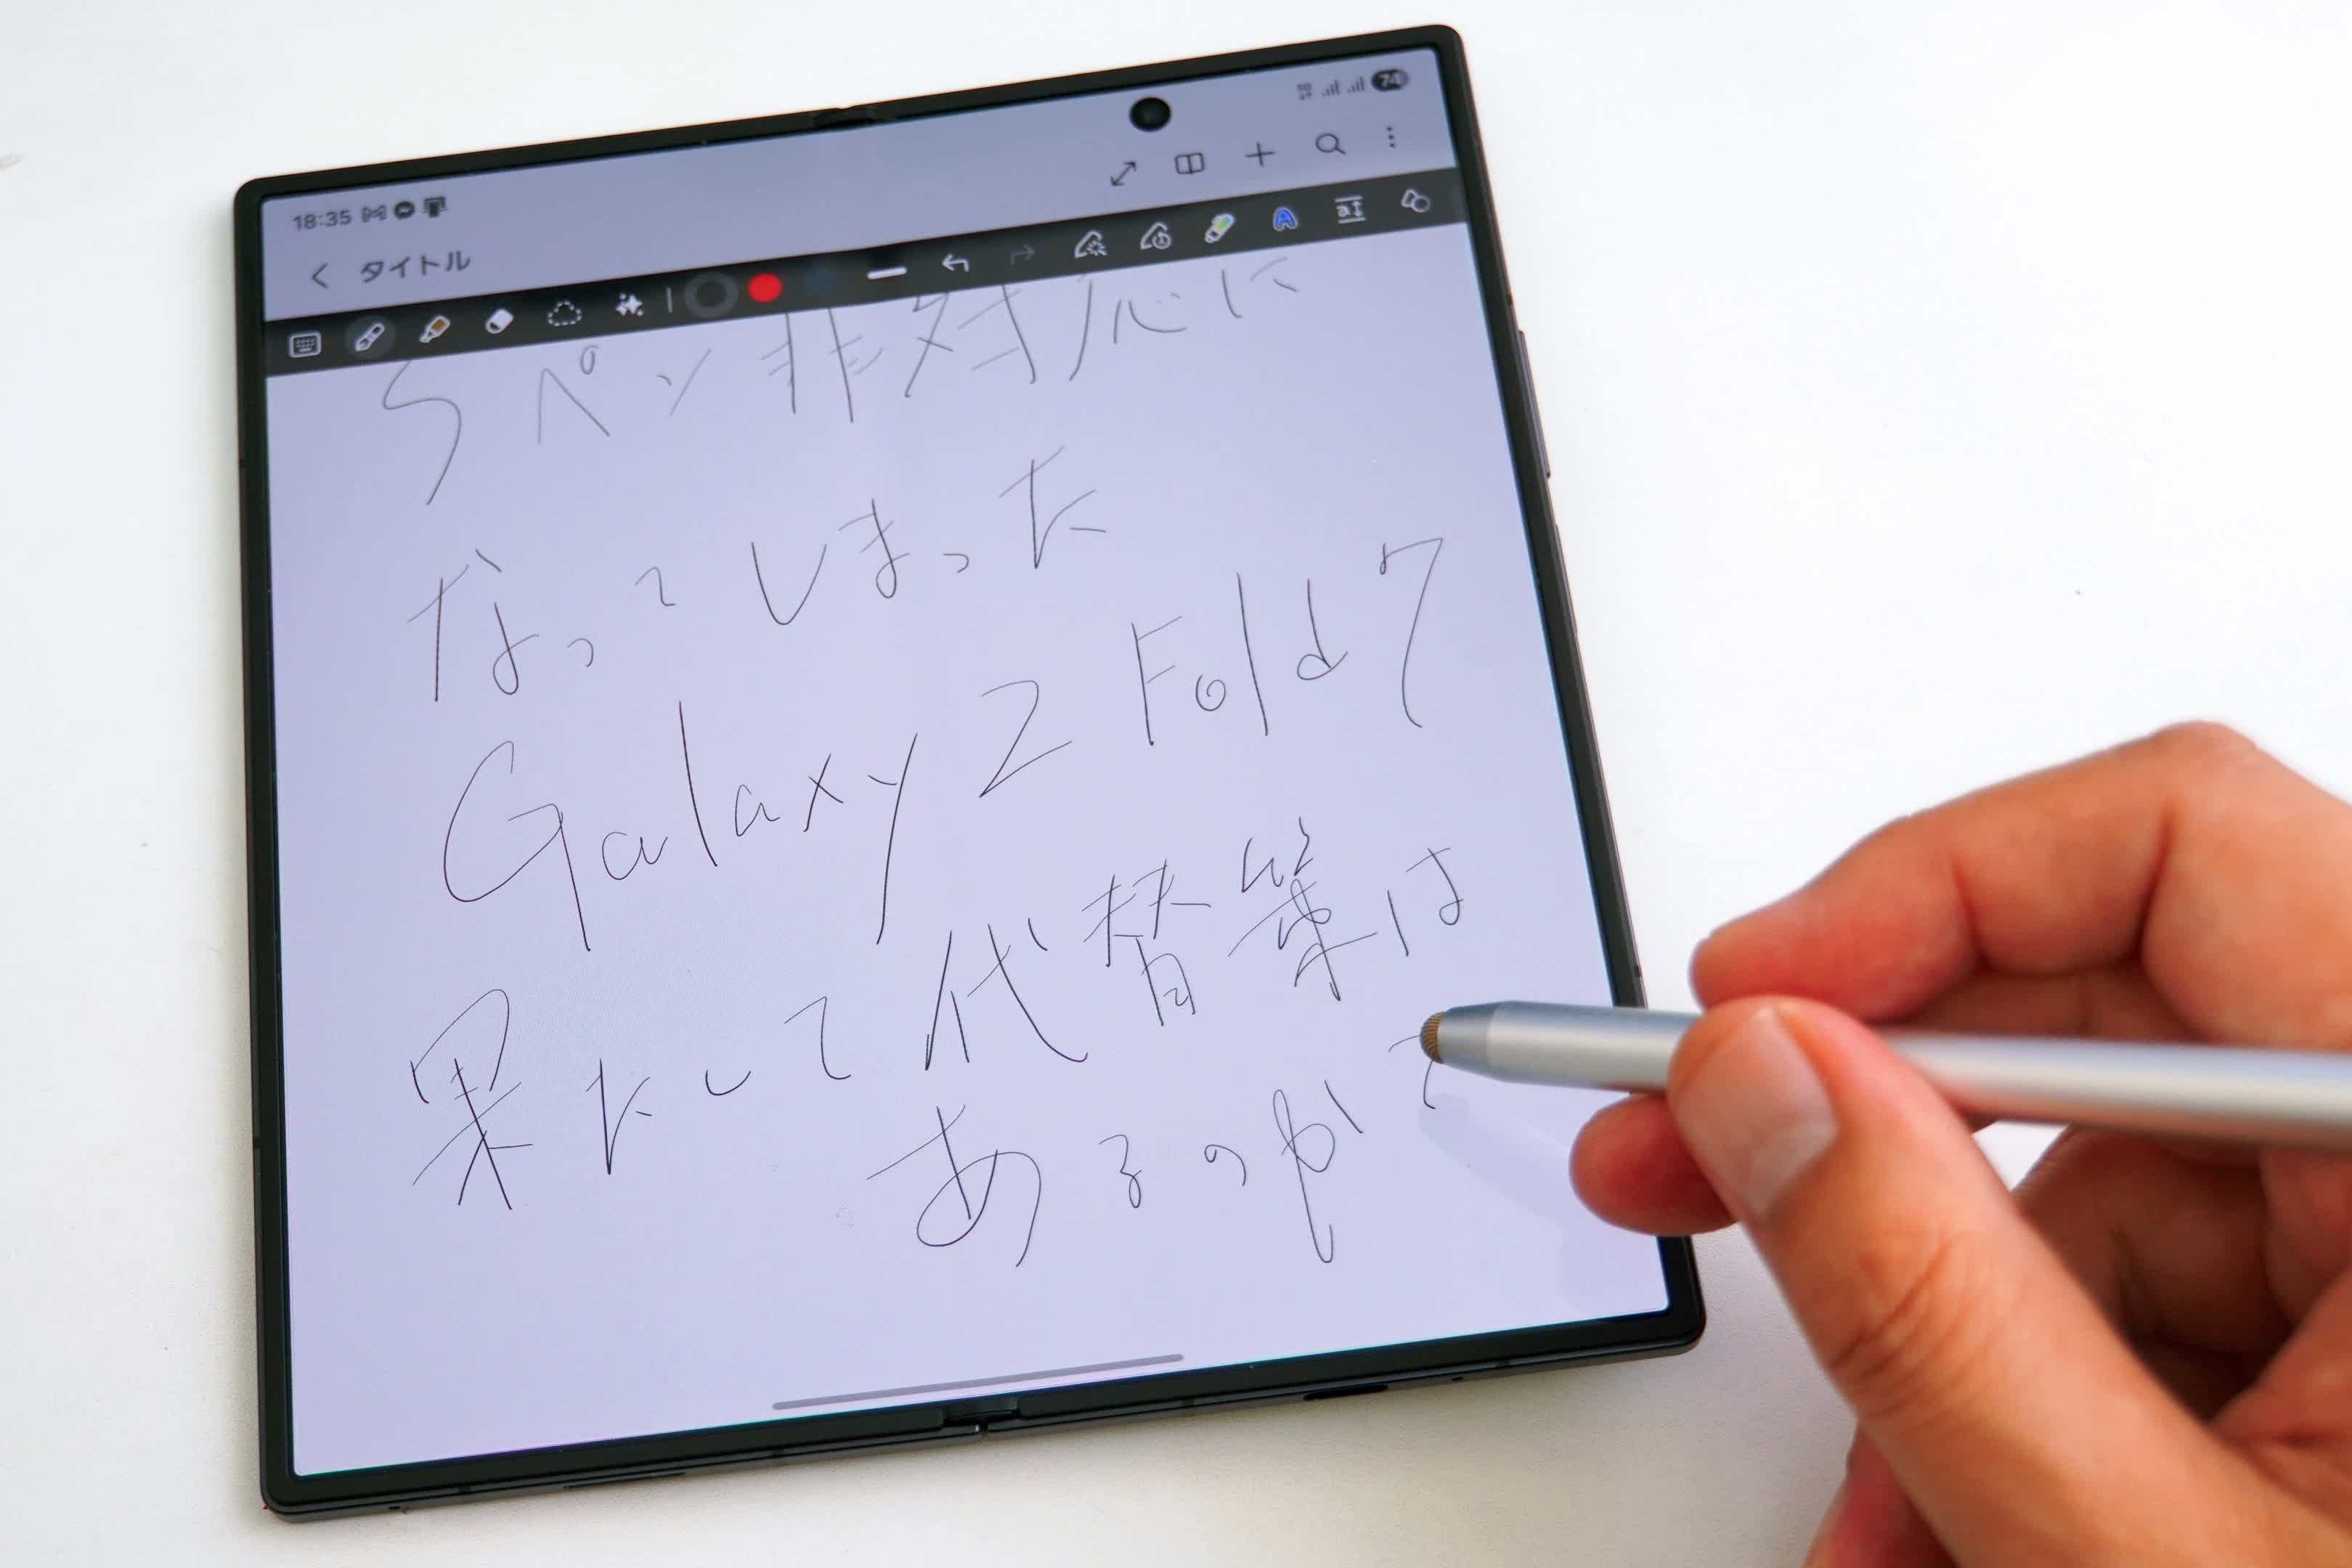 74
18:35
タイトル
Sペン非対応に
なってしまった
Galaxy Z Fold7
果たして代替策は
あるのか